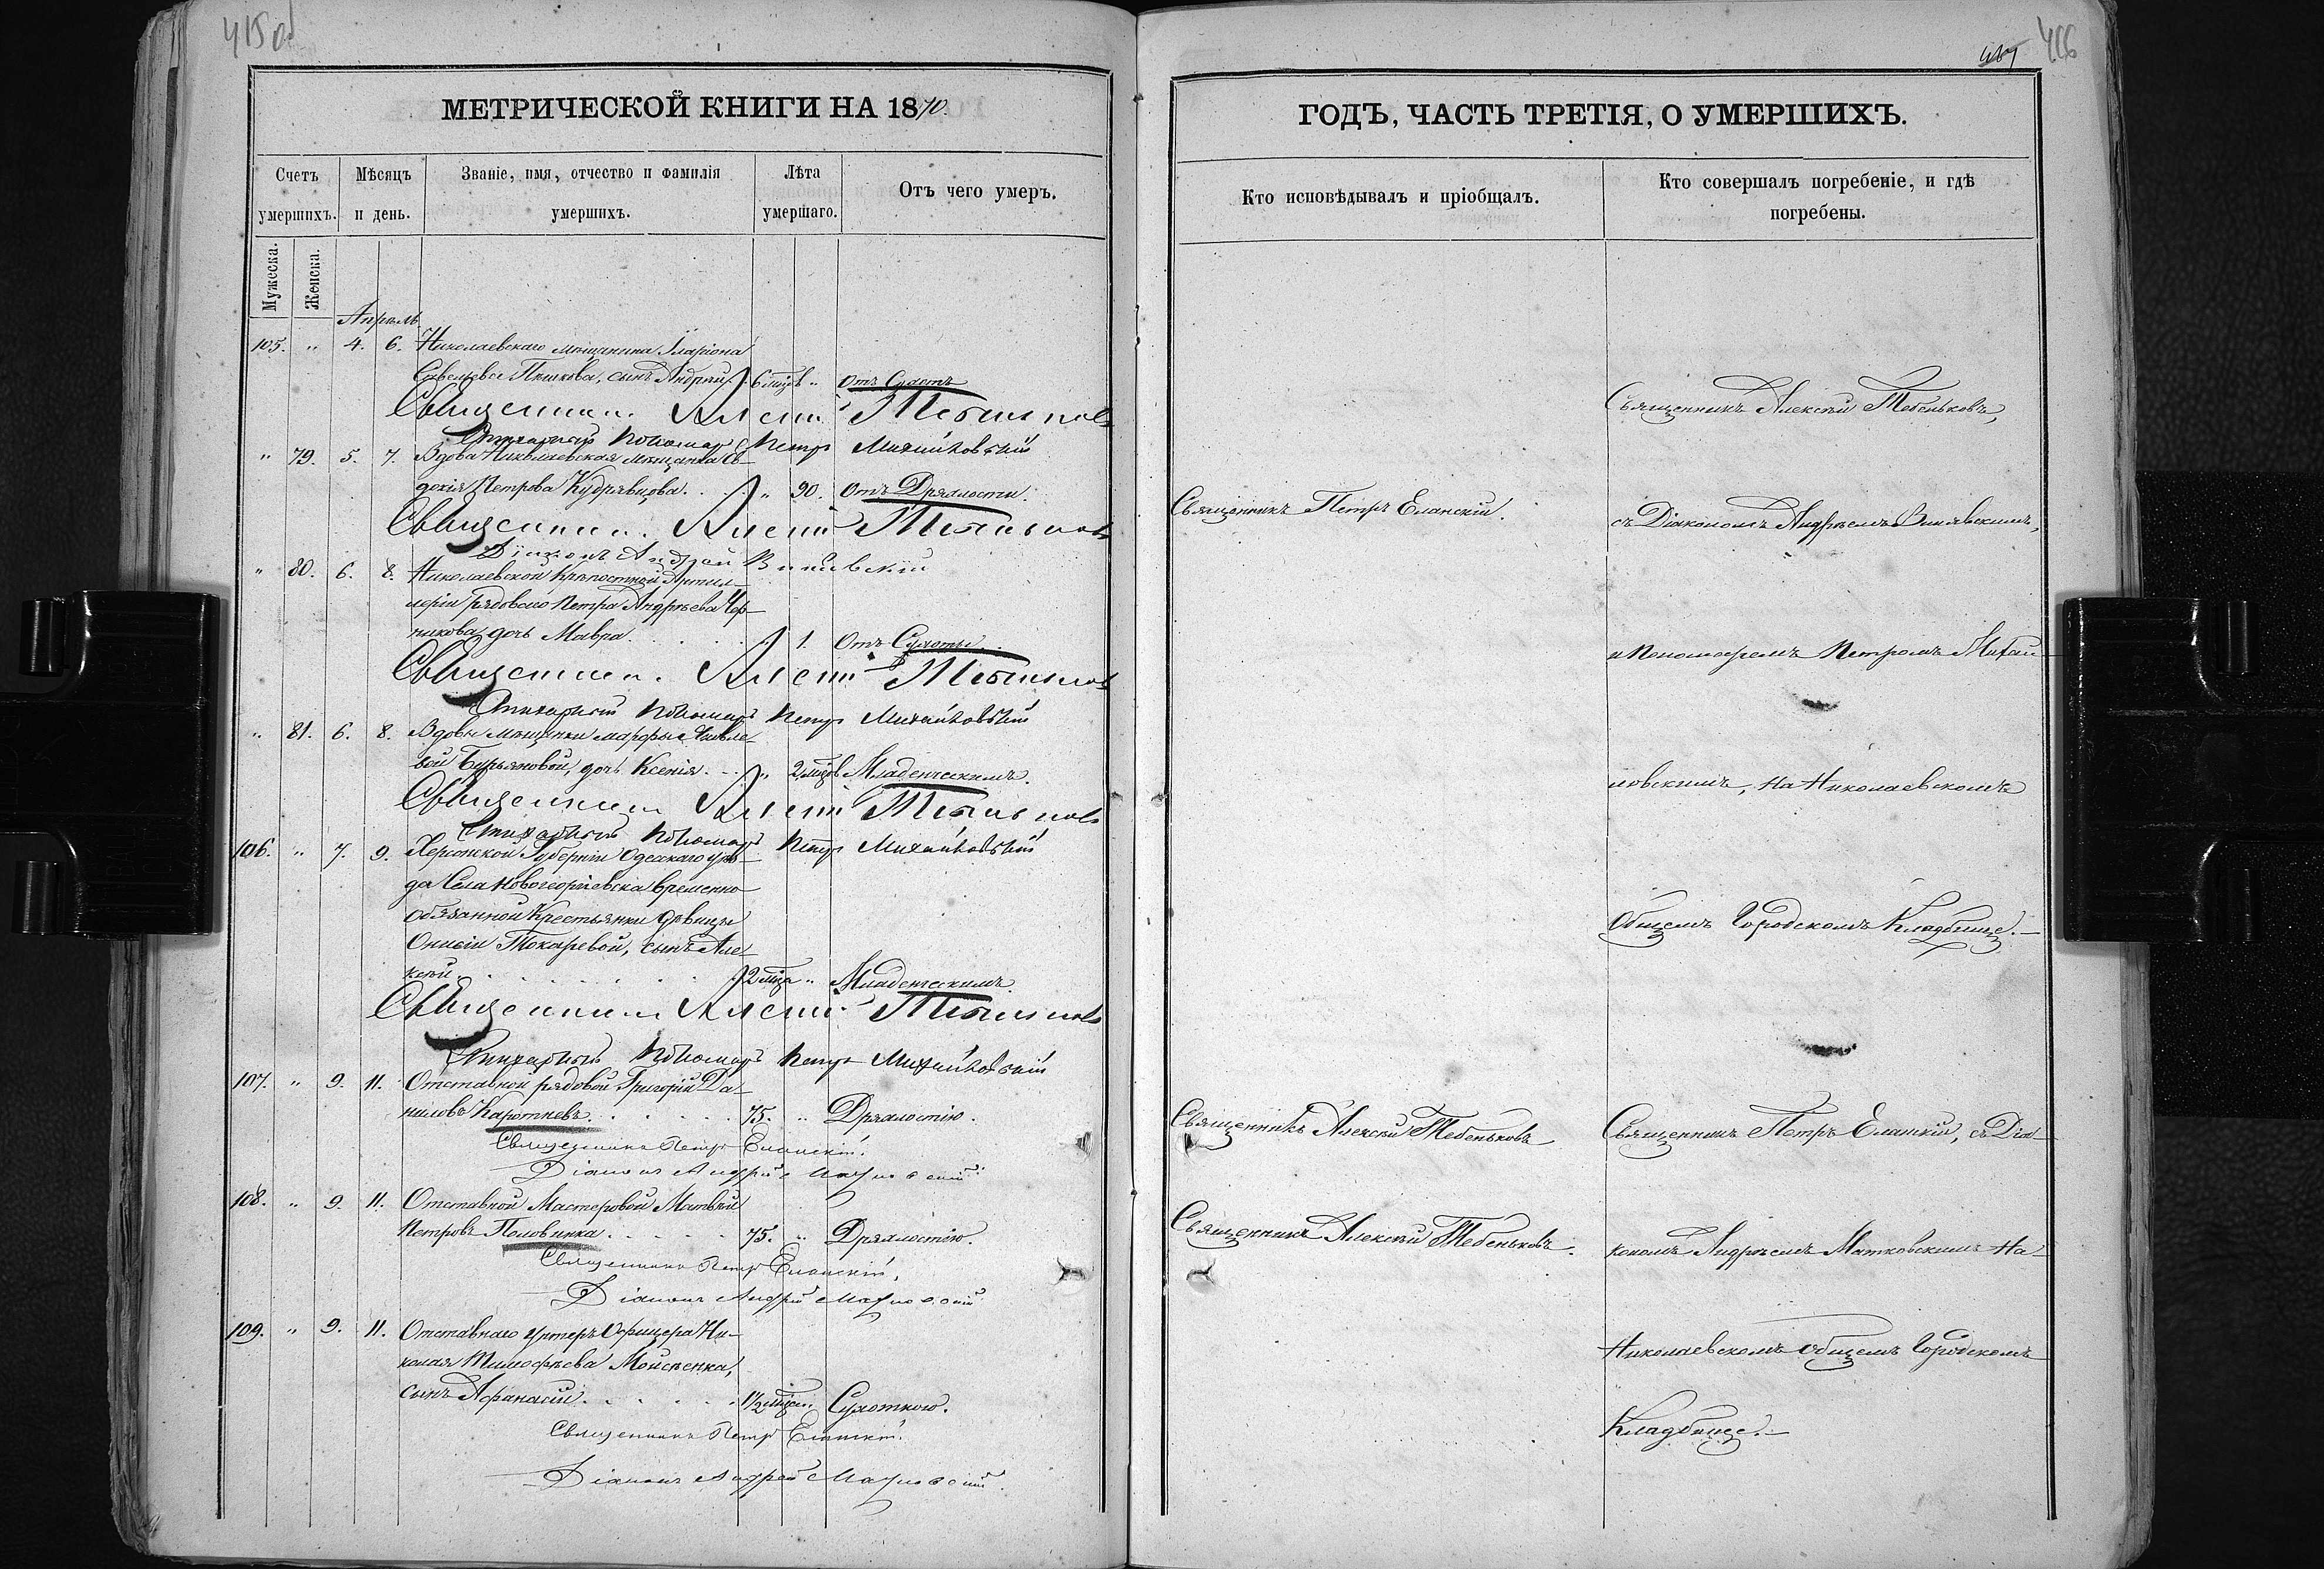 415 об
МЕТРИЧЕСКОЙ КНИГИ НА 1870.
Счетъ умершихъ.
Мѣсяцъ и день.
Званіе, имя, отчество и фамилія умершихъ.
Лѣта умершаго.
Отъ чего умеръ.
Мужеска.
Женска.
Апрѣль
105. " 4. 6. Николаевскаго мѣщанина Иларіона
Савельева Пѣшкова, сынъ Андрей 6 мцъ " Отъ Сухоты
Священникъ Алексій Тебеньковъ
Стихарный Пономарь Петръ Михайловскій
" 79. 5. 7. Вдова Николаевская мѣщанка Ев-
докія Петрова Кудрявцова. . " 90. Отъ Дряхлости.
Священникъ Алексій Тебеньковъ
Діаконъ Андрей Винявскій
" 80. 6. 8. Николаевской Крѣпостной Артил-
леріи рядоваго Петра Андреева Чер-
никова, дочь Мавра. . . . 1. Отъ Сухоты.
Священникъ Алексій Тебеньковъ
Стихарный Пономарь Петръ Михайловскій
" 81. 6. 8. Вдовы мѣщанки Марфы Яковле-
вой Бурьяновой, дочь Ксенія. . " 2 мцъ Младенческимъ.
Священникъ Алексій Тебеньковъ
Стихарный Пономарь Петръ Михайловскій
106. " 7. 9. Херсонской Губерніи Одесскаго уѣз-
да Села Новогеоргіевска временно
обязанной Крестьянки дѣвицы
Онисіи Токаревой, сынъ Але-
ксѣй. . . . . . 2 мца " Младенческимъ.
Священникъ Алексій Тебеньковъ
Стихарный Пономарь Петръ Михайловскій
107. " 9. 11. Отставной рядовой Григорій Да-
ниловъ Каротневъ. . . . . 75. " Дряхлостію.
Священникъ Петръ Еланскій.
Діаконъ Андрей Матковскій
108. " 9. 11. Отставной Мастеровой Матвѣй
Петровъ Половинка. . . . . 75. " Дряхлостію.
Священникъ Петръ Еланскій,
Діаконъ Андрей Матковскій
109. " 9. 11. Отставнаго Унтеръ Офицера Ни-
колая Тимофѣева Мойсѣенка,
сынъ Афанасій. . . . . 1½ мцъ " Сухоткою.
Священникъ Петръ Еланскій.
Діаконъ Андрей Матковскій.
416
ГОДЪ, ЧАСТЬ ТРЕТІЯ, О УМЕРШИХЪ.
Кто исповѣдывалъ и пріобщалъ.
Кто совершалъ погребеніе, и гдѣ погребены.
Священникъ Алексѣй Тебеньковъ,
Священникъ Петръ Еланскій.
съ Діакономъ Андреемъ Винявскимъ,
и Пономаремъ Петромъ Михай-
ловскимъ, на Николаевскомъ
Общемъ Городскомъ Кладбище.-
Священникъ Алексѣй Тебеньковъ
Священникъ Петръ Еланскій, съ Діа-
Священникъ Алексѣй Тебеньковъ.
кономъ Андреемъ Матковскимъ на
Николаевскомъ общемъ Городскомъ
Кладбище.-